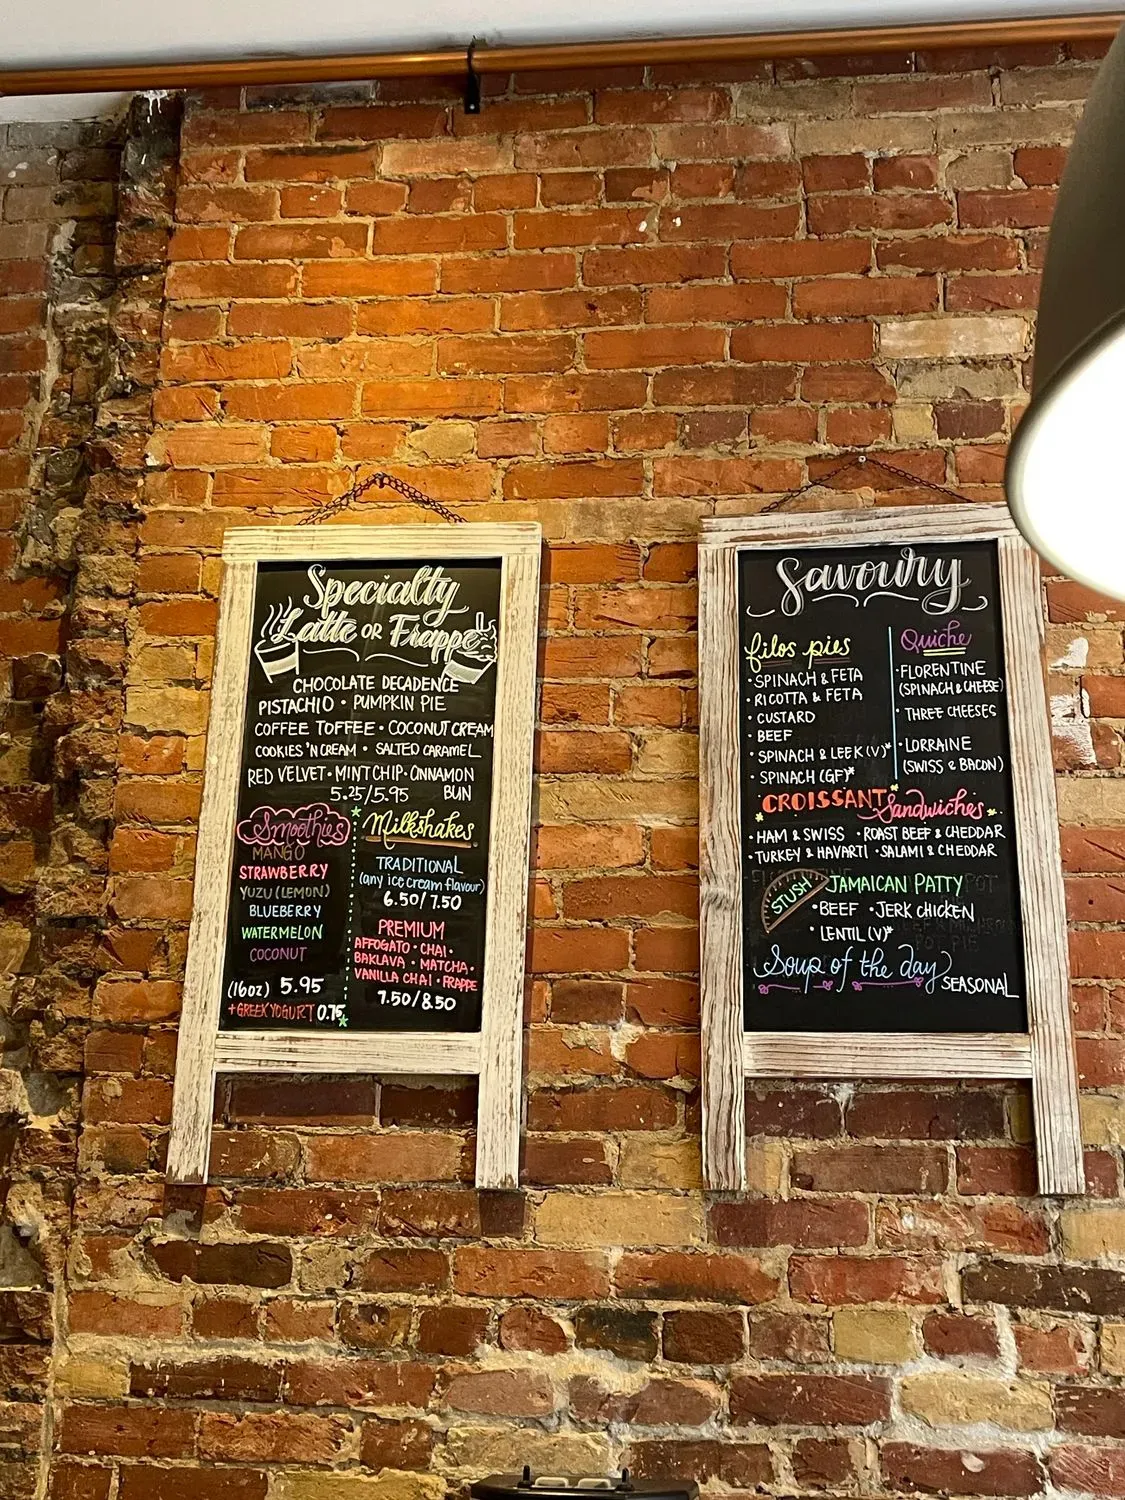 Specialty
Latte OR Frappe
CHOCOLATE DECADENCE
PISTACHIO · PUMPKIN PIE
COFFEE TOFFEE · COCONUT CREAM
COOKIES 'N CREAM · SALTED CARAMEL
RED VELVET · MINT CHIP · CINNAMON
5.25/5.95 BUN
Smoothies
MANGO
STRAWBERRY
YUZU (LEMON)
BLUEBERRY
WATERMELON
COCONUT
(16oz) 5.95
+GREEK YOGURT 0.75
Milkshakes
TRADITIONAL
(any ice cream flavour)
6.50/7.50
PREMIUM
AFFOGATO · CHAI ·
BAKLAVA · MATCHA ·
VANILLA CHAI · FRAPPE
7.50/8.50
Savoury
filos pies
· SPINACH & FETA
· RICOTTA & FETA
· CUSTARD
· BEEF
· SPINACH & LEEK (V)*
· SPINACH (GF)*
Quiche
· FLORENTINE
(SPINACH & CHEESE)
· THREE CHEESES
· LORRAINE
(SWISS & BACON)
CROISSANT Sandwiches
· HAM & SWISS · ROAST BEEF & CHEDDAR
· TURKEY & HAVARTI · SALAMI & CHEDDAR
STUSH JAMAICAN PATTY
· BEEF · JERK CHICKEN
· LENTIL (V)*
Soup of the day
SEASONAL